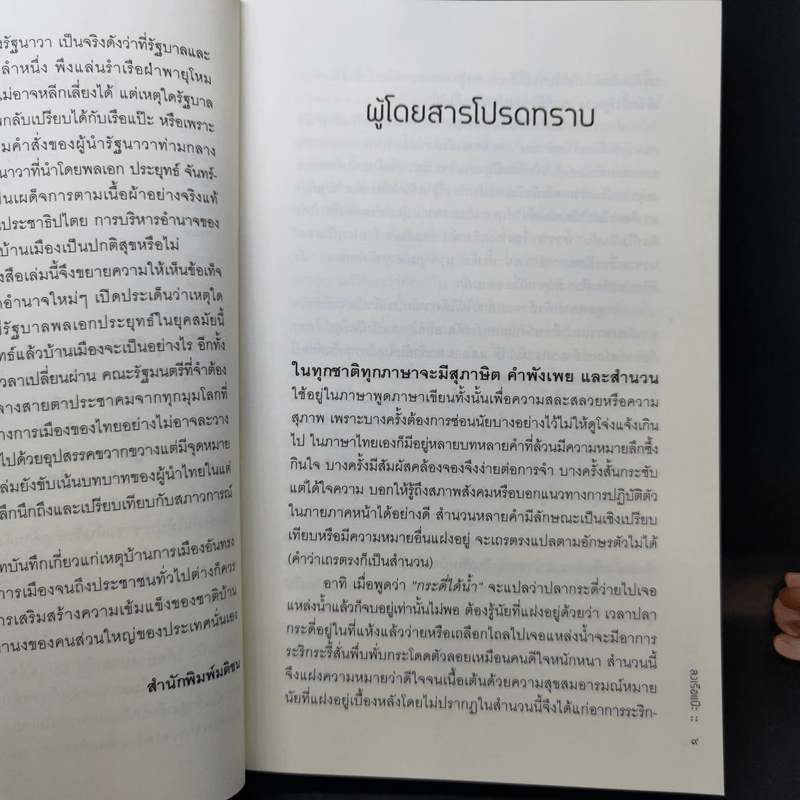 งรัฐนาวา เป็นจริงดังว่าที่รัฐบาลและ
ลำหนึ่ง พึงแล่นรำเรือฝ่าพายุโหม
ม่อาจหลีกเลี่ยงได้ แต่เหตุใดรัฐบาล
กลับเปรียบได้กับเรือแป๊ะ หรือเพราะ
มคำสั่งของผู้นำรัฐนาวาท่ามกลาง
นาวาที่นำโดยพลเอก ประยุทธ์ จันทร์-
ป็นเผด็จการตามเนื้อผ้าอย่างจริงแท้
ประชาธิปไตย การบริหารอำนาจของ
บ้านเมืองเป็นปกติสุขหรือไม่
งสือเล่มนี้จึงขยายความให้เห็นข้อเท็จ
อำนาจใหม่ๆ เปิดประเด็นว่าเหตุใด
รัฐบาลพลเอกประยุทธ์ในยุคสมัยนี้
ทธ์แล้วบ้านเมืองจะเป็นอย่างไร อีกทั้ง
วลาเปลี่ยนผ่าน คณะรัฐมนตรีที่จำต้อง
ลางสายตาประชาคมจากทุกมุมโลกที่
างการเมืองของไทยอย่างไม่อาจละวาง
ไปด้วยอุปสรรคขวากขวางแต่มีจุดหมาย
ล่มยังขับเน้นบทบาทของผู้นำไทยในแต่
ลึกนึกถึงและเปรียบเทียบกับสภาวการณ์
ทบันทึกเกี่ยวแก่เหตุบ้านการเมืองอันทรง
การเมืองจนถึงประชาชนทั่วไปต่างก็ควร
การเสริมสร้างความเข้มแข็งของชาติบ้าน
านงของคนส่วนใหญ่ของประเทศนั่นเอง
สำนักพิมพ์มติชน
ผู้โดยสารโปรดทราบ
ในทุกชาติทุกภาษาจะมีสุภาษิต คำพังเพย และสำนวน
ใช้อยู่ในภาษาพูดภาษาเขียนทั้งนั้นเพื่อความสละสลวยหรือความ
สุภาพ เพราะบางครั้งต้องการซ่อนนัยบางอย่างไว้ไม่ให้ดูโจ่งแจ้งเกิน
ไป ในภาษาไทยเองก็มีอยู่หลายบทหลายคำที่ล้วนมีความหมายลึกซึ้ง
กินใจ บางครั้งมีสัมผัสคล้องจองจึงง่ายต่อการจำ บางครั้งสั้นกระชับ
แต่ได้ใจความ บอกให้รู้ถึงสภาพสังคมหรือบอกแนวทางการปฏิบัติตัว
ในภายภาคหน้าได้อย่างดี สำนวนหลายคำมีลักษณะเป็นเชิงเปรียบ
เทียบหรือมีความหมายอื่นแฝงอยู่ จะเถรตรงแปลตามอักษรตัวไม่ได้
(คำว่าเถรตรงก็เป็นสำนวน)
อาทิ เมื่อพูดว่า “กระดี่ได้น้ำ” จะแปลว่าปลากระดี่ว่ายไปเจอ
แหล่งน้ำแล้วก็จบอยู่เท่านั้นไม่พอ ต้องรู้นัยที่แฝงอยู่ด้วยว่า เวลาปลา
กระดี่อยู่ในที่แห้งแล้วว่ายหรือเถลือกไถลไปเจอแหล่งน้ำจะมีอาการ
ระริกระรี้สั่นพึ่บพั่บกระโดดตัวลอยเหมือนคนดีใจหนักหนา สำนวนนี้
จึงแฝงความหมายว่าดีใจจนเนื้อเต้นด้วยความสุขสมอารมณ์หมาย
นัยที่แฝงอยู่เบื้องหลังโดยไม่ปรากฏในสำนวนนี้จึงได้แก่อาการระริก-
ลงเรือแป๊ะ ::
๙